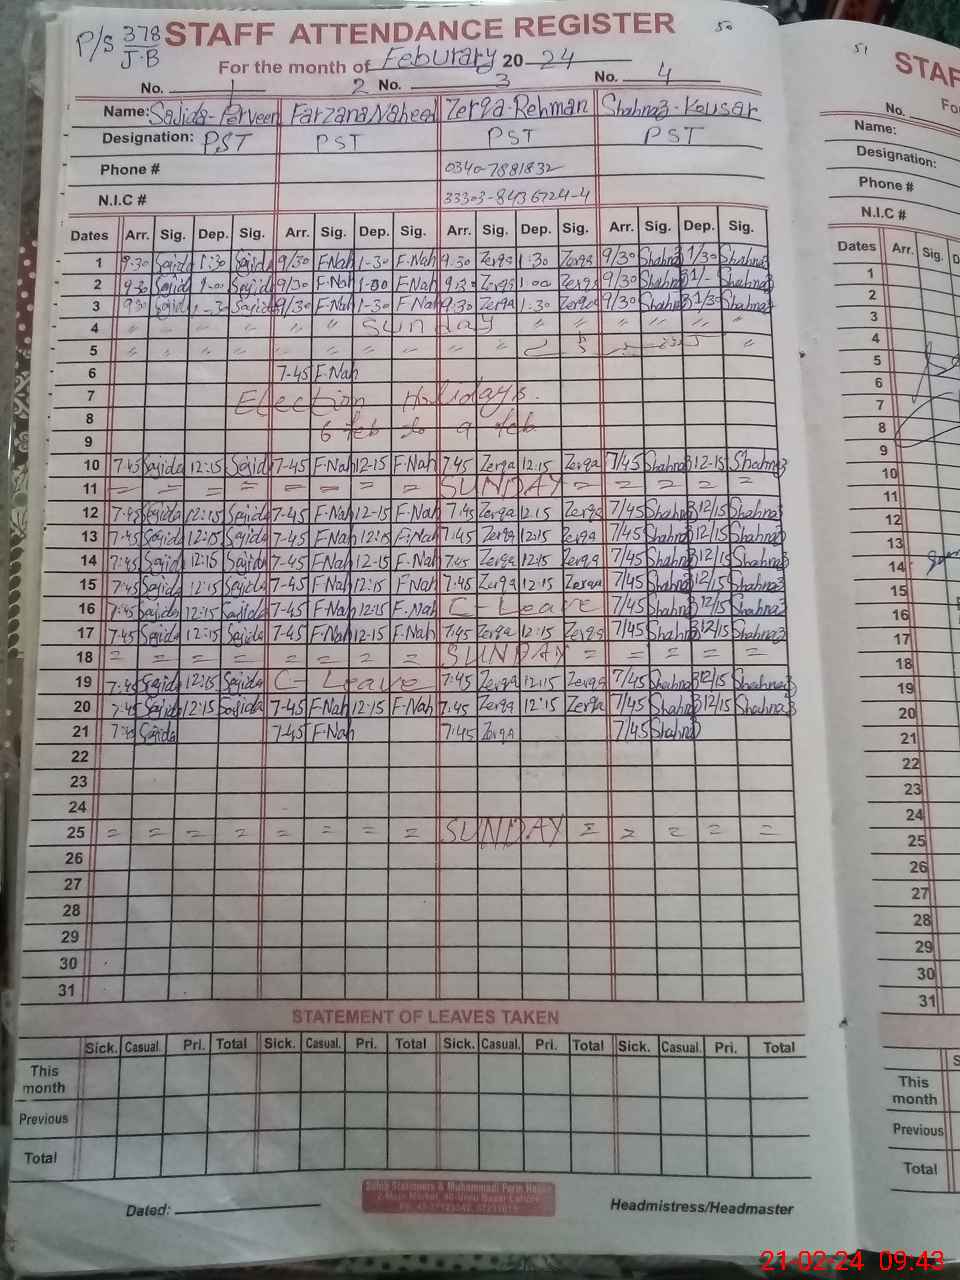 P/S 378 J.B
STAFF ATTENDANCE REGISTER 50
For the month of Feburary 20 24
No. 1 2 No. 3 No. 4
Name: Sajida-Perveen Farzana Naheed Zerqa-Rehman Shahnaz-Kousar
Designation: PST PST PST PST
Phone # 0340-7881832
N.I.C # 33303-8436724-4
Dates Arr. Sig. Dep. Sig. Arr. Sig. Dep. Sig. Arr. Sig. Dep. Sig. Arr. Sig. Dep. Sig.
1 9:30 Sajida 1:30 Sajida 9/30 F-Nah 1-30 F-Nah 9:30 Zerqa 1:30 Zerqa 9/30 Shahnaz 1/30 Shahnaz
2 9:30 Sajida 1:00 Sajida 9/30 F-Nah 1-00 F-Nah 9:30 Zerqa 1:00 Zerqa 9/30 Shahnaz 1/- Shahnaz
3 9:30 Sajida 1-30 Sajida 9/30 F-Nah 1-30 F-Nah 9:30 Zerqa 1:30 Zerqa 9/30 Shahnaz 1/30 Shahnaz
4 " " " " " " Sunday " " " " " "
5 " " " " " " " " " "
6 7-45 F-Nah
7 Election Holidays.
8 6 feb to 9 feb
9
10 7:45 Sajida 12:15 Sajida 7-45 F-Nah 12-15 F-Nah 7:45 Zerqa 12:15 Zerqa 7/45 Shahnaz 12-15 Shahnaz
11 = = = = = = = = SUNDAY = = = = =
12 7:45 Sajida 12:15 Sajida 7-45 F-Nah 12-15 F-Nah 7:45 Zerqa 12:15 Zerqa 7/45 Shahnaz 12/15 Shahnaz
13 7:45 Sajida 12:15 Sajida 7-45 F-Nah 12:15 F-Nah 7:45 Zerqa 12:15 Zerqa 7/45 Shahnaz 12/15 Shahnaz
14 7:45 Sajida 12:15 Sajida 7-45 F-Nah 12-15 F-Nah 7:45 Zerqa 12:15 Zerqa 7/45 Shahnaz 12/15 Shahnaz
15 7:45 Sajida 12:15 Sajida 7-45 F-Nah 12:15 F-Nah 7:45 Zerqa 12:15 Zerqa 7/45 Shahnaz 12/15 Shahnaz
16 7:45 Sajida 12:15 Sajida 7-45 F-Nah 12:15 F-Nah C-Leave 7/45 Shahnaz 12/15 Shahnaz
17 7:45 Sajida 12:15 Sajida 7-45 F-Nah 12-15 F-Nah 7:45 Zerqa 12:15 Zerqa 7/45 Shahnaz 12/15 Shahnaz
18 = = = = = = = = SUNDAY = = = = =
19 7:45 Sajida 12:15 Sajida C-Leave 7:45 Zerqa 12:15 Zerqa 7/45 Shahnaz 12/15 Shahnaz
20 7:45 Sajida 12:15 Sajida 7-45 F-Nah 12-15 F-Nah 7:45 Zerqa 12:15 Zerqa 7/45 Shahnaz 12/15 Shahnaz
21 7:45 Sajida 7-45 F-Nah 7:45 Zerqa 7/45 Shahnaz
22
23
24
25 = = = = = = = = SUNDAY = = = = =
26
27
28
29
30
31
STATEMENT OF LEAVES TAKEN
Sick. Casual. Pri. Total Sick. Casual. Pri. Total Sick. Casual. Pri. Total Sick. Casual. Pri. Total
This month
Previous
Total
Dated:
Headmistress/Headmaster
51
STAF
Fo
No.
Name:
Designation:
Phone #
N.I.C #
Dates Arr. Sig. D
1
2
3
4
5
6
7
8
9
10
11
12
13
14
15
16
17
18
19
20
21
22
23
24
25
26
27
28
29
30
31
S
This month
Previous
Total
21-02-24 09:43